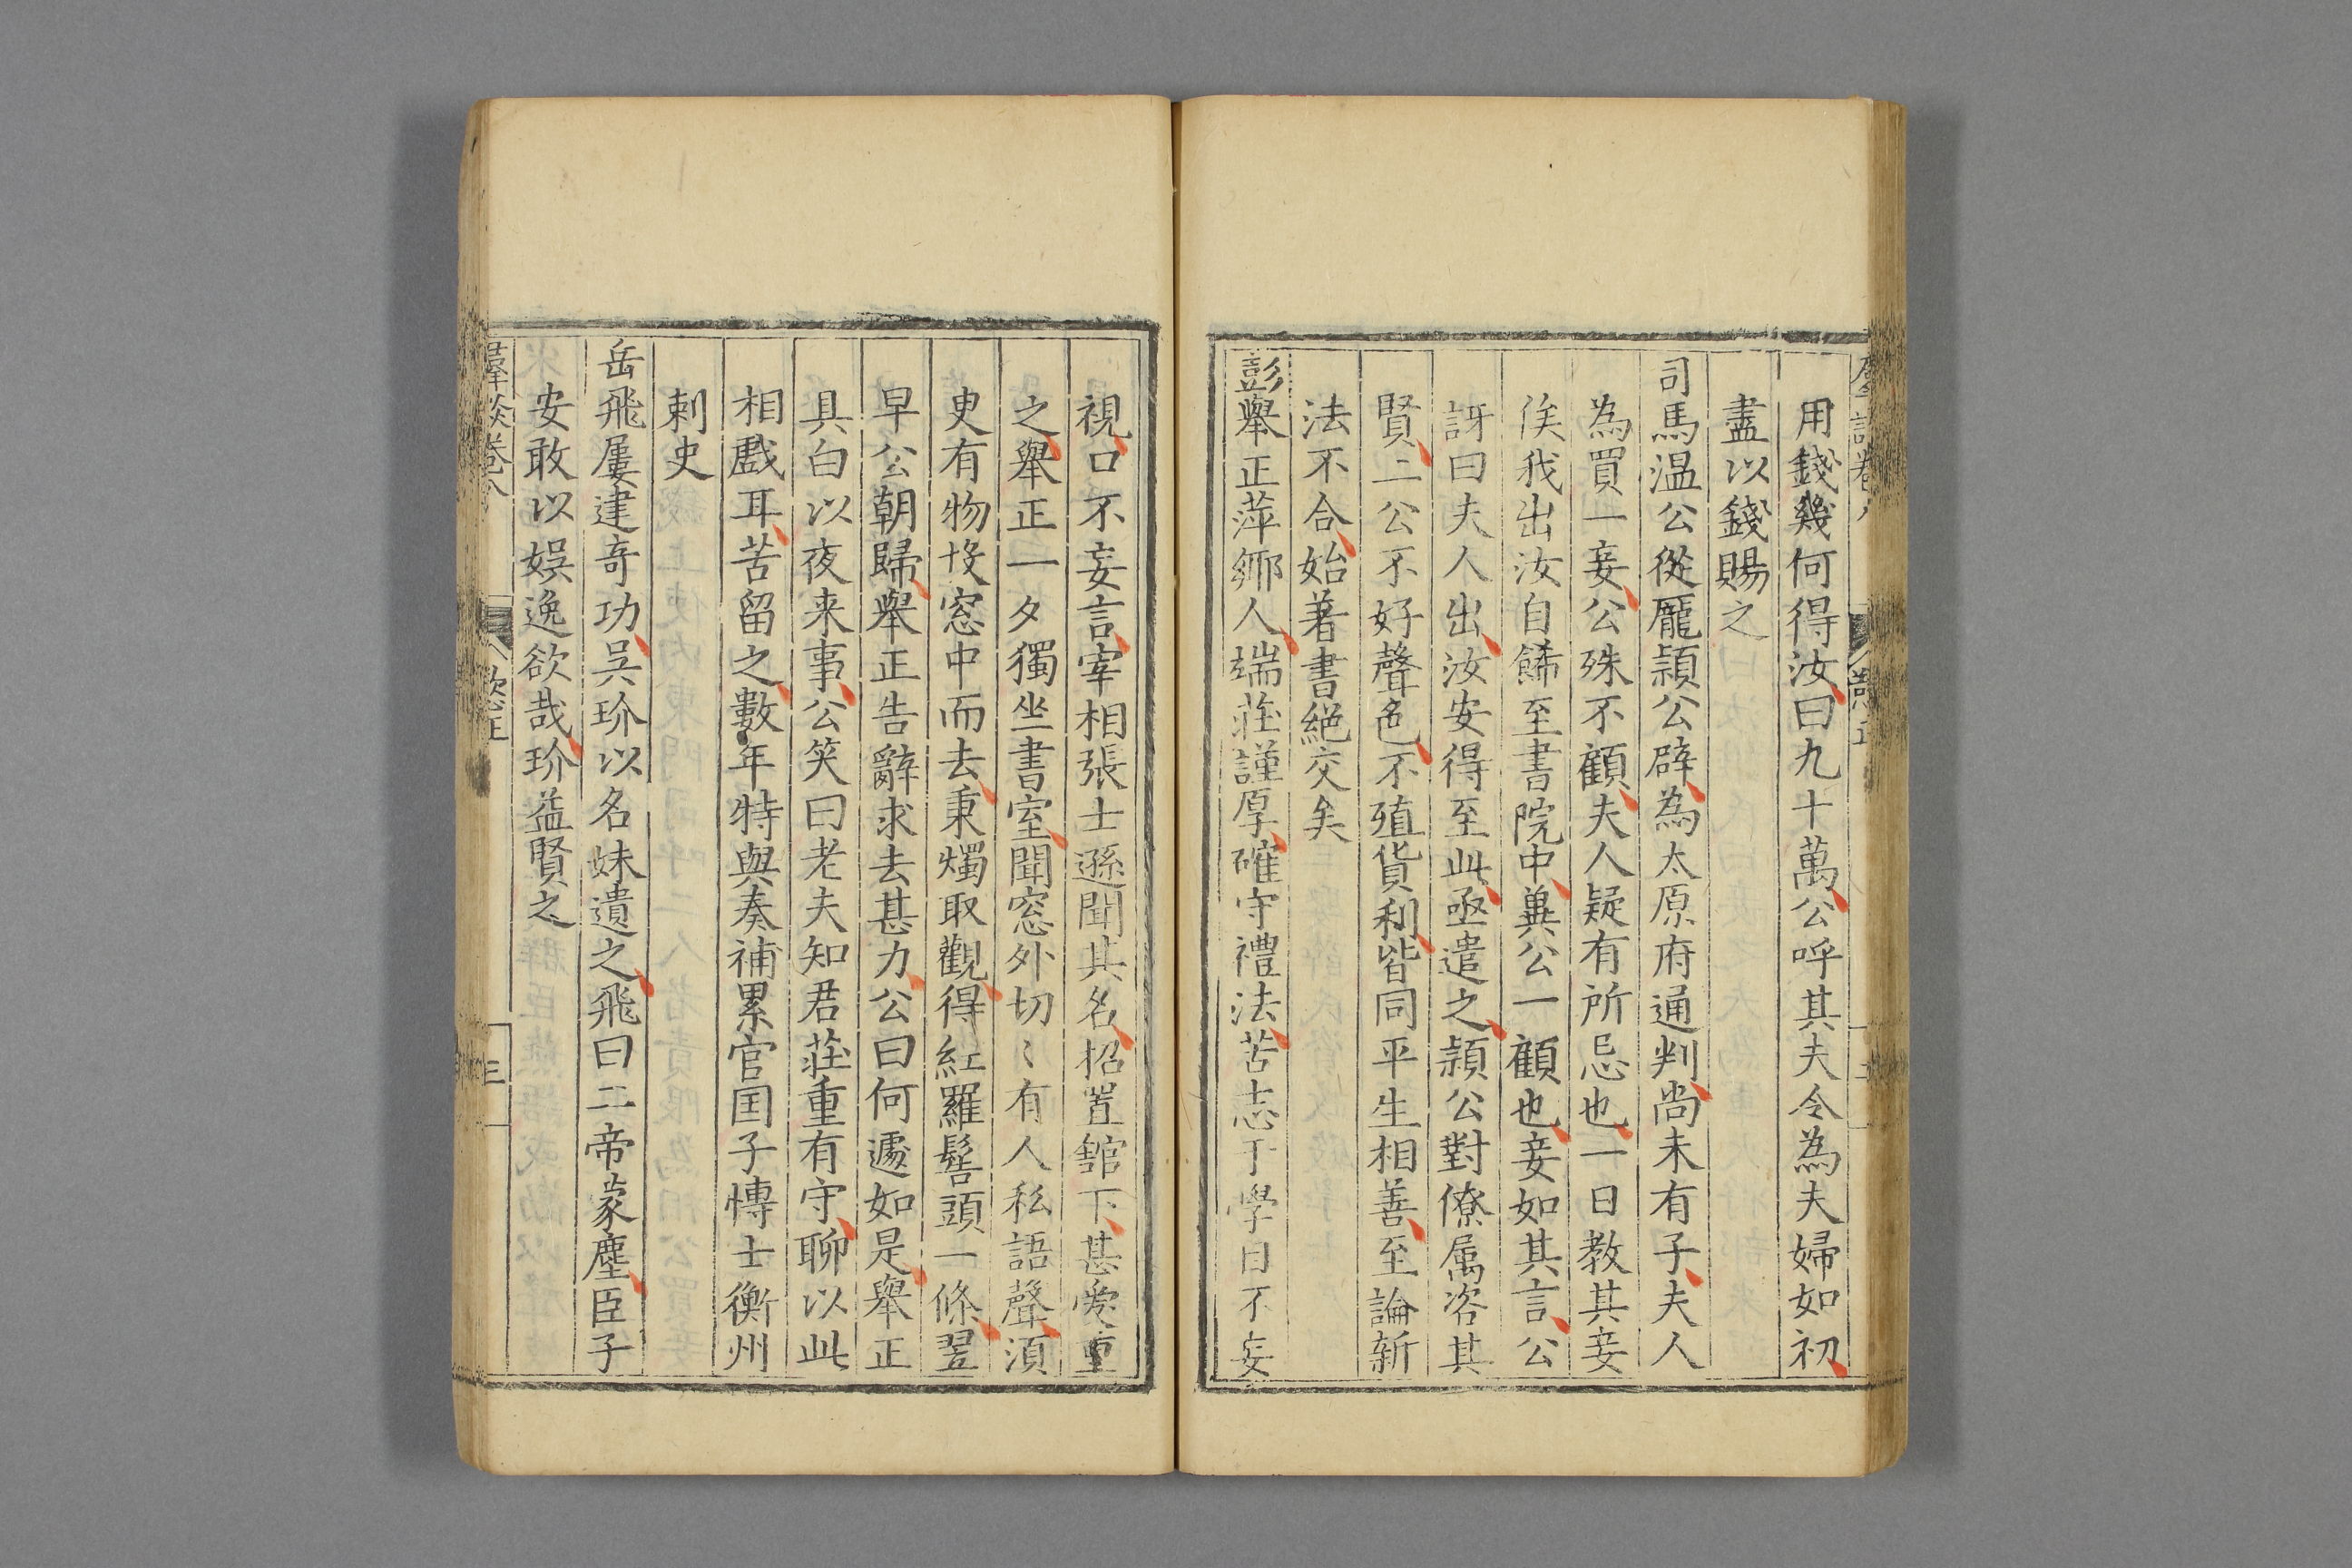 用錢幾何得汝曰九十萬公呼其夫令為夫婦如初
盡以錢賜之
司馬溫公從龐穎公辟為太原府通判尚未有子夫人
為買一妾公殊不顧夫人疑有所忌也一日教其妾
俟我出汝自餙至書院中兾公一顧也妾如其言公
訝曰夫人出汝安得至此亟遣之穎公對僚属咨其
賢二公不好聲色不殖貨利皆同平生相善至論新
法不合始著書絕交矣
彭舉正萍鄉人端莊謹厚確守禮法苦志于學目不妄
視口不妄言宰相張士遜聞其名招置舘下甚愛重
之舉正一夕獨坐書室聞窓外切〻有人私語聲湏
叓有物𭏟窓中而去秉燭取觀得紅羅髻頭一條翌
早公朝歸舉正告辭求去甚力公曰何遽如是舉正
具白以夜来事公笑曰老夫知君莊重有守聊以此
相戲耳苦留之數年特與奏補累官国子愽士衡州
刺史
岳飛屢建竒功吳玠以名妹遺之飛曰二帝蒙塵臣子
安敢以娯逸欲哉玠益賢之
羣談卷八
三